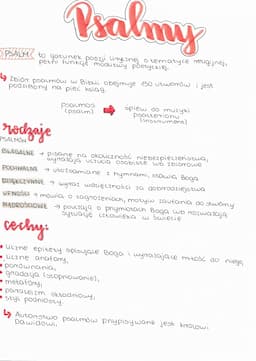 Psalmy
PSALM to gatunek poezji lirycznej o tematyce religijnej,
pełni funkcję modlitwy poetyckiej.
↳ Zbiór psalmów w Biblii obejmuje 150 utworów i jest
podzielony na pięć ksiąg.
psalmos → śpiew do muzyki
(psalm)
(instrument)
rodzaje
PSALMÓW
BŁAGALNE → pisane na okoliczność niebezpieczeństwa,
wyrażają uczucia osobiste lub zbiorowe
POCHWALNE → utożsamiane z hymnami, sławią Boga
DZIĘKCZYNNE → wyraz wdzięczności za dobrodziejstwa
UFNOŚCI → mówią o zagrożeniach, motyw zaufania do
MĄDROŚCIOWE → pouczają o przymiotach Boga lub rozważają
sytuację człowieka w świecie
cechy:
• liczne epitety opisujące Boga i wyrażające miłość do niego
• liczne anafory,
• porównania,
• gradacja (stopniowanie),
• metafory,
• paralelizm składniowy,
• styl podniosły.
↳ Autorstwo psalmów przypisywane jest królowi
Dawidowi.